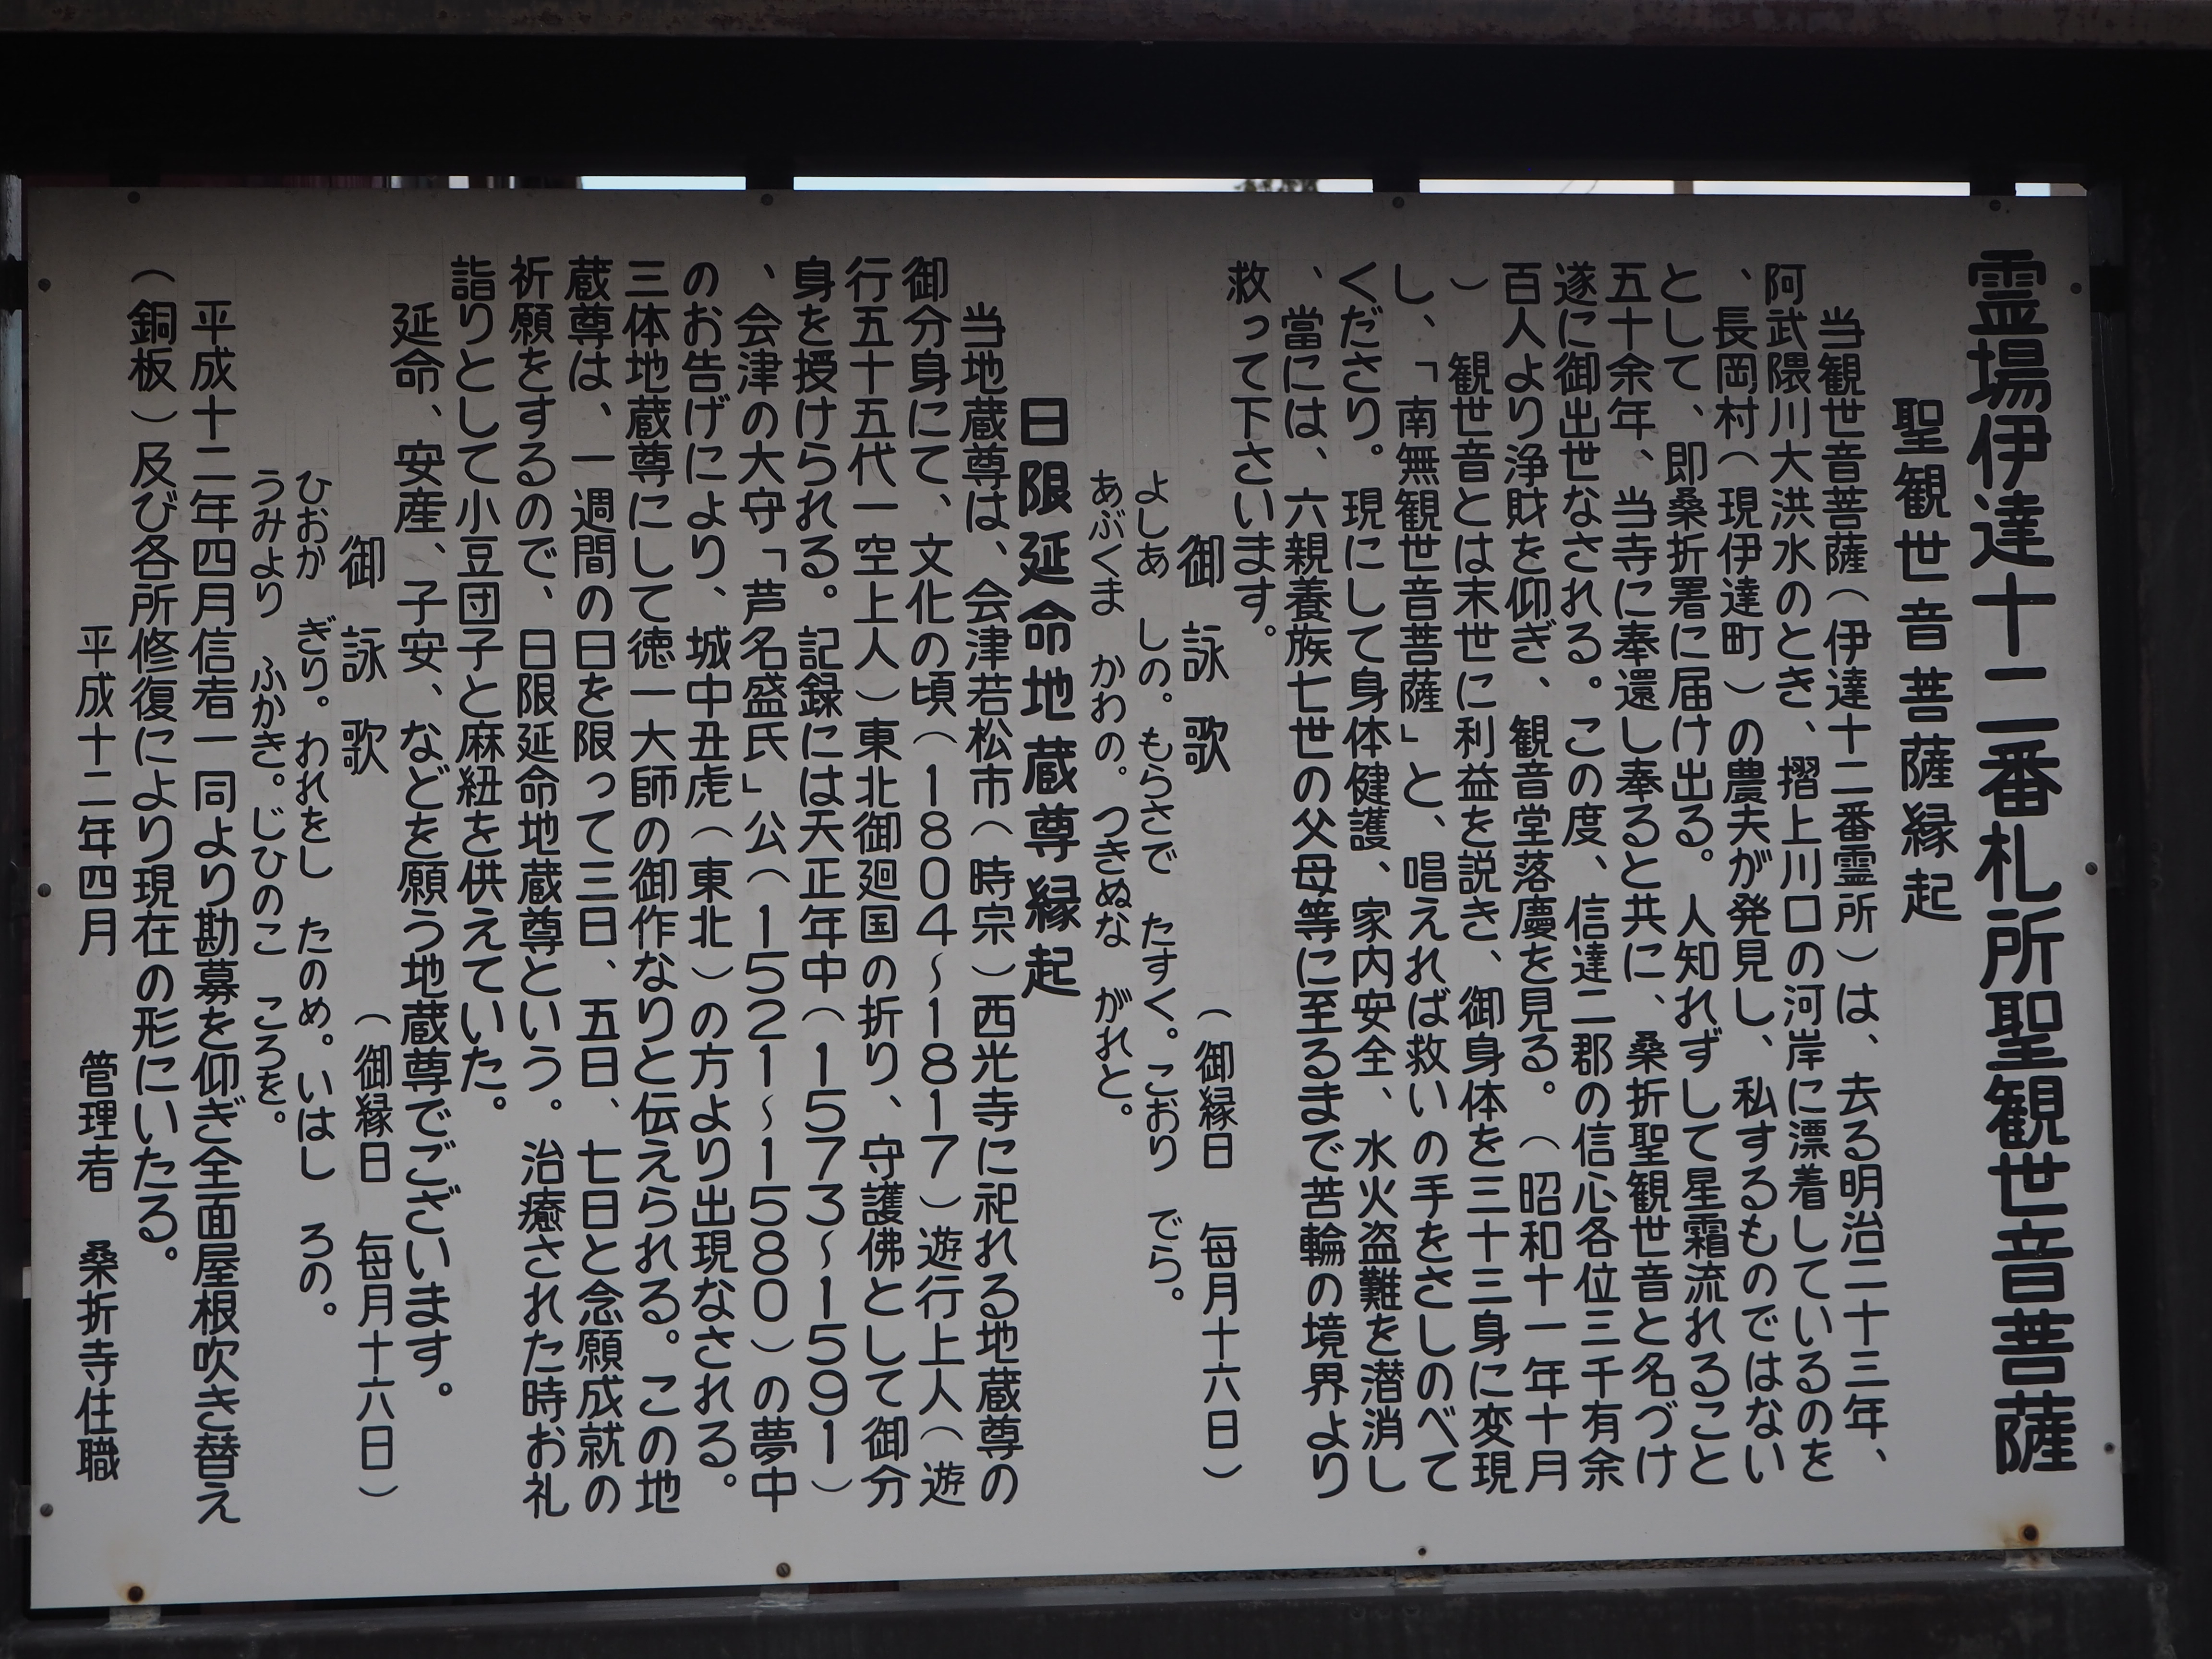 霊場伊達十二番札所聖観世音菩薩
聖観世音菩薩縁起
当観世音菩薩（伊達十二番霊所）は、去る明治二十三年、
阿武隈川大洪水のとき、摺上川口の河岸に漂着しているのを
、長岡村（現伊達町）の農夫が発見し、私するものではない
として、即桑折署に届け出る。人知れずして星霜流れること
五十余年、当寺に奉還し奉ると共に、桑折聖観世音と名づけ
遂に御出世なされる。この度、信達二郡の信心各位三千有余
百人より浄財を仰ぎ、観音堂落慶を見る。（昭和十一年十月
）　観世音とは末世に利益を説き、御身体を三十三身に変現
し、「南無観世音菩薩」と、唱えれば救いの手をさしのべて
くださり。現にして身体健護、家内安全、水火盗難を潜消し
、當には、六親養族七世の父母等に至るまで苦輪の境界より
救って下さいます。
御詠歌　（御縁日　毎月十六日）
よしあ　しの。もらさで　たすく。こおり　でら。
あぶくま　かわの。つきぬな　がれと。
日限延命地蔵尊縁起
当地蔵尊は、会津若松市（時宗）西光寺に祀れる地蔵尊の
御分身にて、文化の頃（１８０４～１８１７）遊行上人（遊
行五十五代一空上人）東北御廻国の折り、守護佛として御分
身を授けられる。記録には天正年中（１５７３～１５９１）
、会津の大守「芦名盛氏」公（１５２１～１５８０）の夢中
のお告げにより、城中丑虎（東北）の方より出現なされる。
三体地蔵尊にして徳一大師の御作なりと伝えられる。この地
蔵尊は、一週間の日を限って三日、五日、七日と念願成就の
祈願をするので、日限延命地蔵尊という。治癒された時お礼
詣りとして小豆団子と麻紐を供えていた。
延命、安産、子安、などを願う地蔵尊でございます。
御詠歌　（御縁日　毎月十六日）
ひおか　ぎり。われをし　たのめ。いはし　ろの。
うみより　ふかき。じひのこ　ころを。
平成十二年四月信者一同より勘募を仰ぎ全面屋根吹き替え
（銅板）及び各所修復により現在の形にいたる。
平成十二年四月　管理者　桑折寺住職